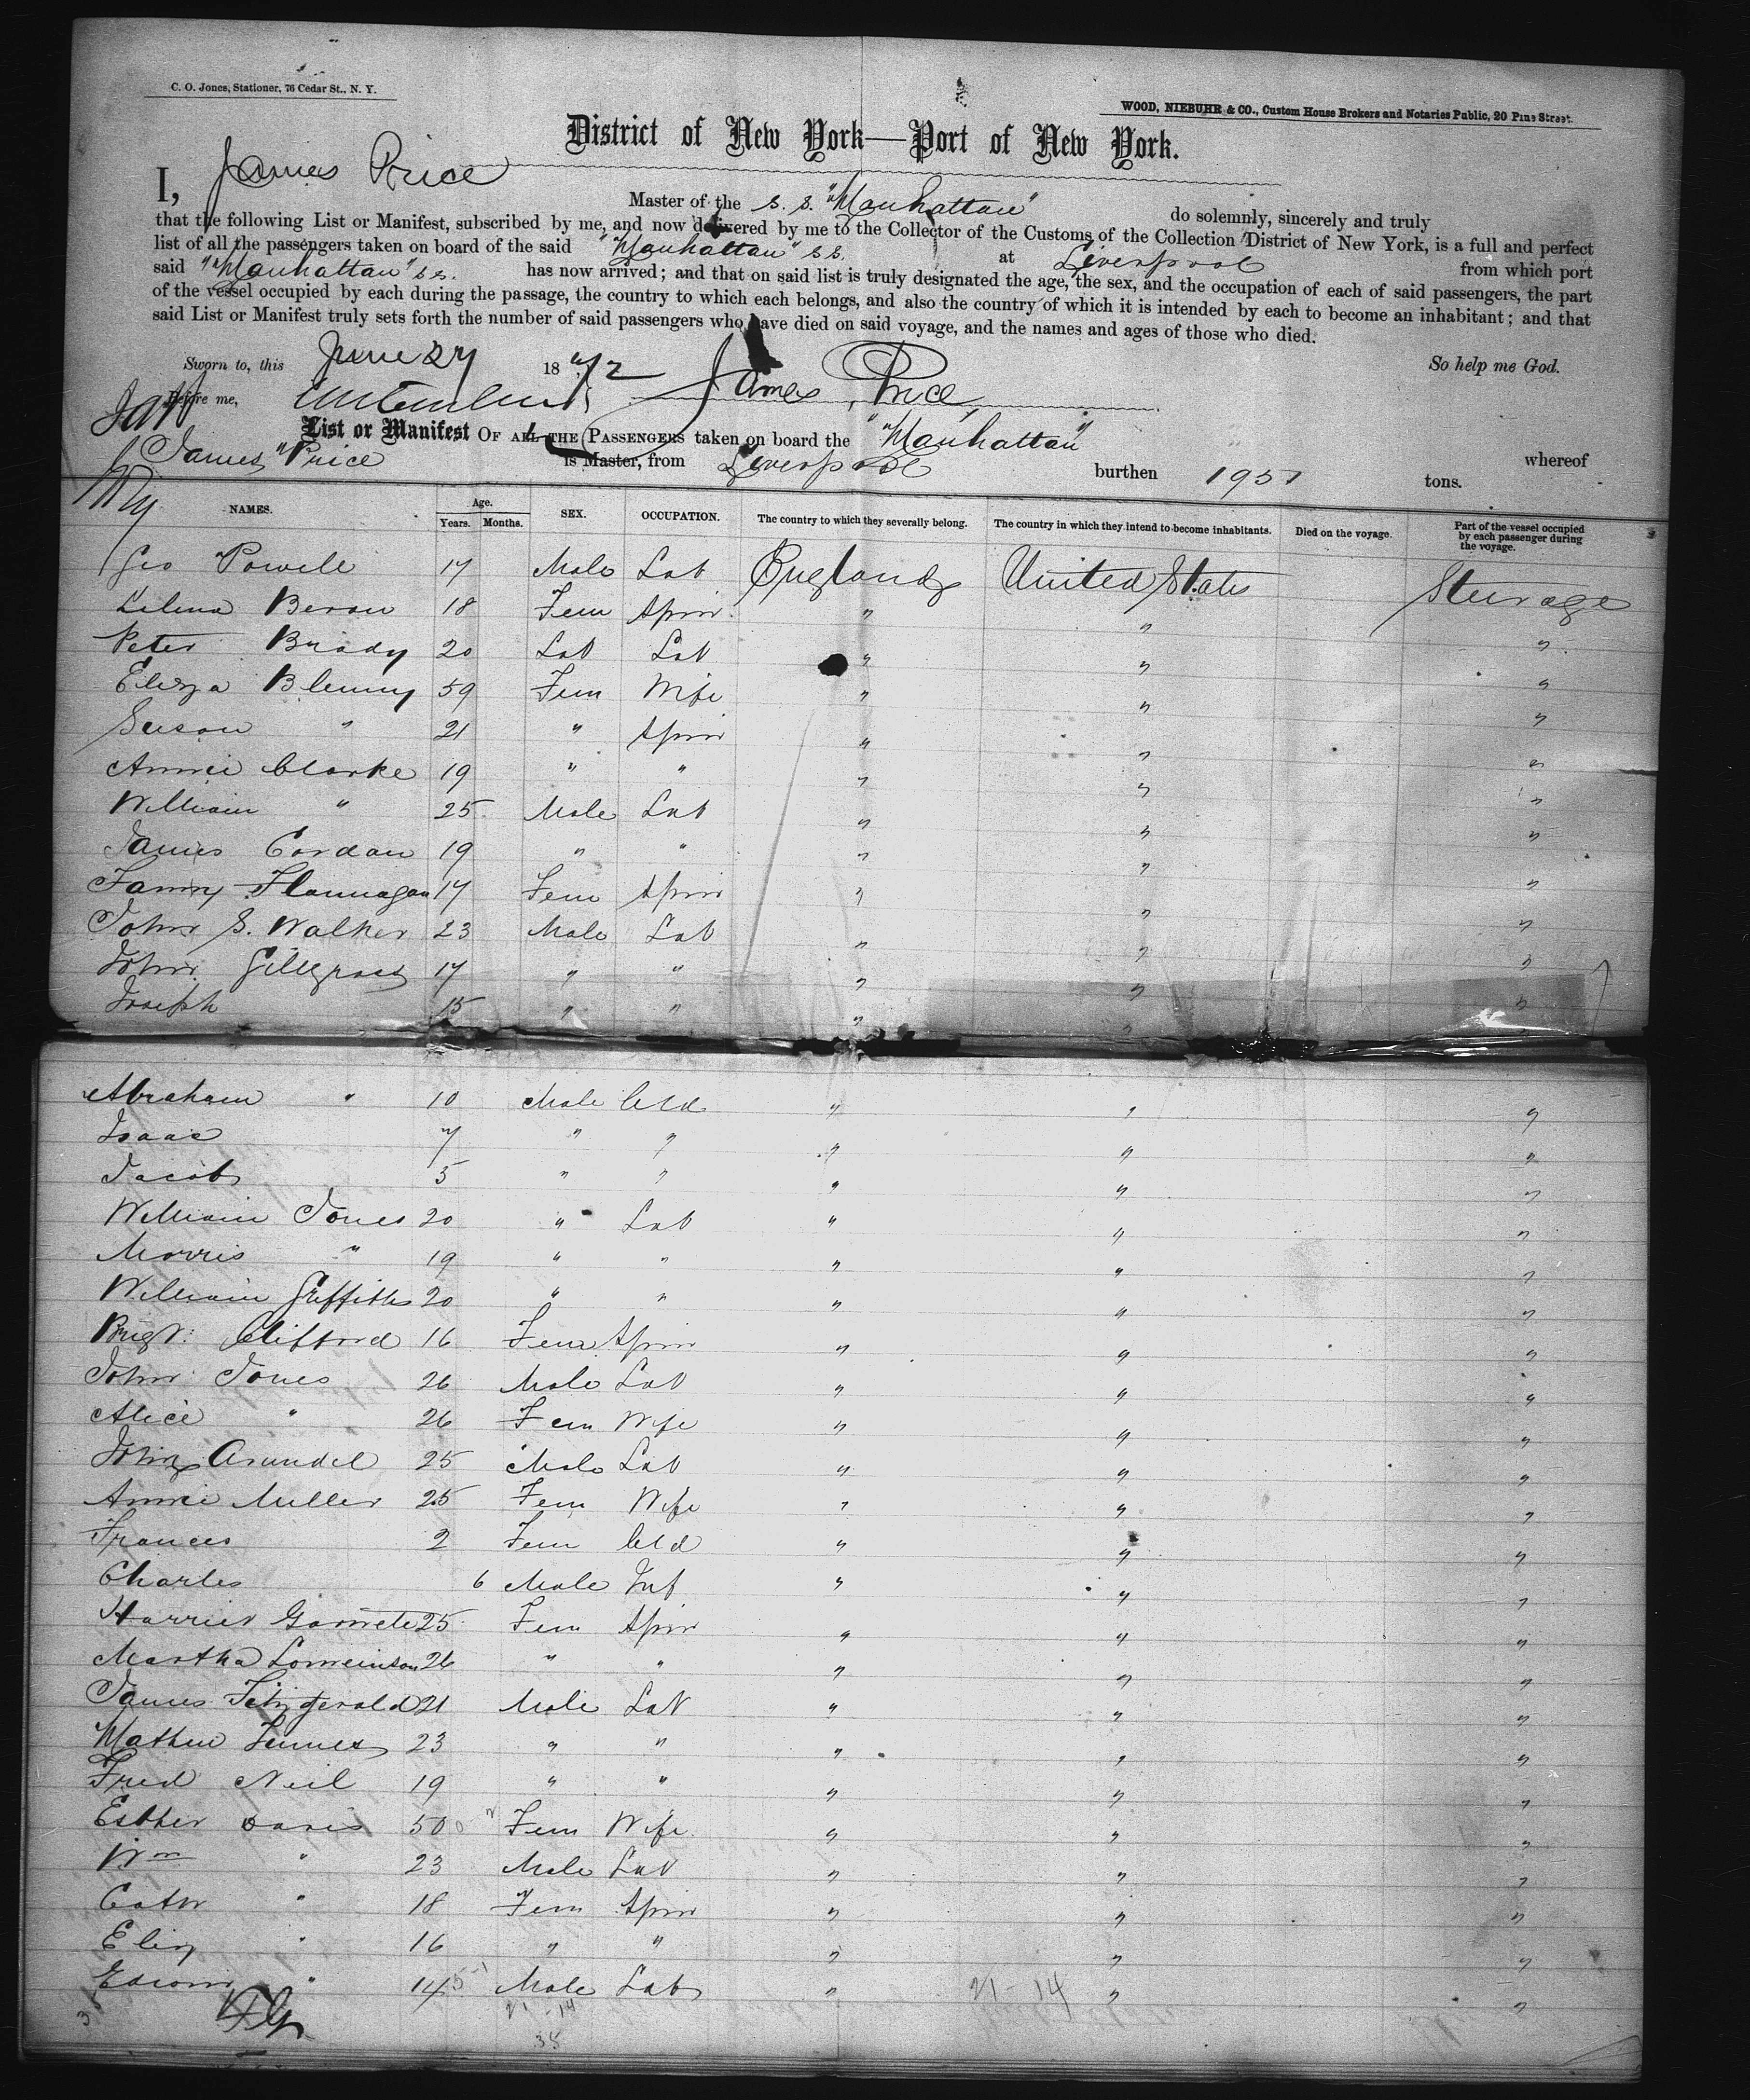 C. O. Jones, Stationer, 76 Cedar St., N. Y.
WOOD, NIEBUHR & CO., Custom House Brokers and Notaries Public, 20 Pine Street.
District of New York—Port of New York.
I, James Price Master of the S. S. "Manhattan" do solemnly, sincerely and truly
that the following List or Manifest, subscribed by me, and now delivered by me to the Collector of the Customs of the Collection District of New York, is a full and perfect
list of all the passengers taken on board of the said "Manhattan" SS. at Liverpool from which port
said "Manhattan" SS. has now arrived; and that on said list is truly designated the age, the sex, and the occupation of each of said passengers, the part
of the vessel occupied by each during the passage, the country to which each belongs, and also the country of which it is intended by each to become an inhabitant; and that
said List or Manifest truly sets forth the number of said passengers who have died on said voyage, and the names and ages of those who died.
Sworn to, this June 27 1872 So help me God.
Before me, James Price
List or Manifest OF ALL THE PASSENGERS taken on board the "Manhattan" whereof
James Price is Master, from Liverpool burthen 1951 tons.
NAMES. Age. Years. Months. SEX. OCCUPATION. The country to which they severally belong. The country in which they intend to become inhabitants. Died on the voyage. Part of the vessel occupied by each passenger during the voyage.
Geo Powell 17 Male Lab England United States Steerage
Beron 18 Fem Spin " " "
Peter Brady 20 Lab Lab " " "
Eliza Blenny 59 Fem Wife " " "
Susan " 21 " Spin " " "
Annie Clarke 19 " " " " "
William " 25 Male Lab " " "
James Cordan 19 " " " " "
Fanny Flannagan 17 Fem Spin " " "
John S. Walker 23 Male Lab " " "
John 17 " " " " "
Joseph 15 " " " " "
Abraham " 10 Male Cld " " "
Isaac 7 " " " " "
Jacob 5 " " " " "
William Jones 20 " Lab " " "
Morris " 19 " " " " "
William Griffiths 20 " " " " "
Brigt: Clifford 16 Fem Spin " " "
John Jones 26 Male Lab " " "
Alice " 26 Fem Wife " " "
John Arundel 25 Male Lab " " "
Annie Miller 25 Fem Wife " " "
Frances 2 Fem Cld " " "
Charles 6 Male Inf " " "
Harriet 25 Fem Spin " " "
Martha 26 " " " " "
James Fitzgerald 21 Male Lab " " "
Mathew 23 " " " " "
Fred Neil 19 " " " " "
Esther Davis 50 Fem Wife " " "
Wm " 23 Male Lab " " "
Cath " 18 Fem Spin " " "
Eliz " 16 " " " " "
Edwin " 14 Male Lab " 21-14 " "
21-14
38